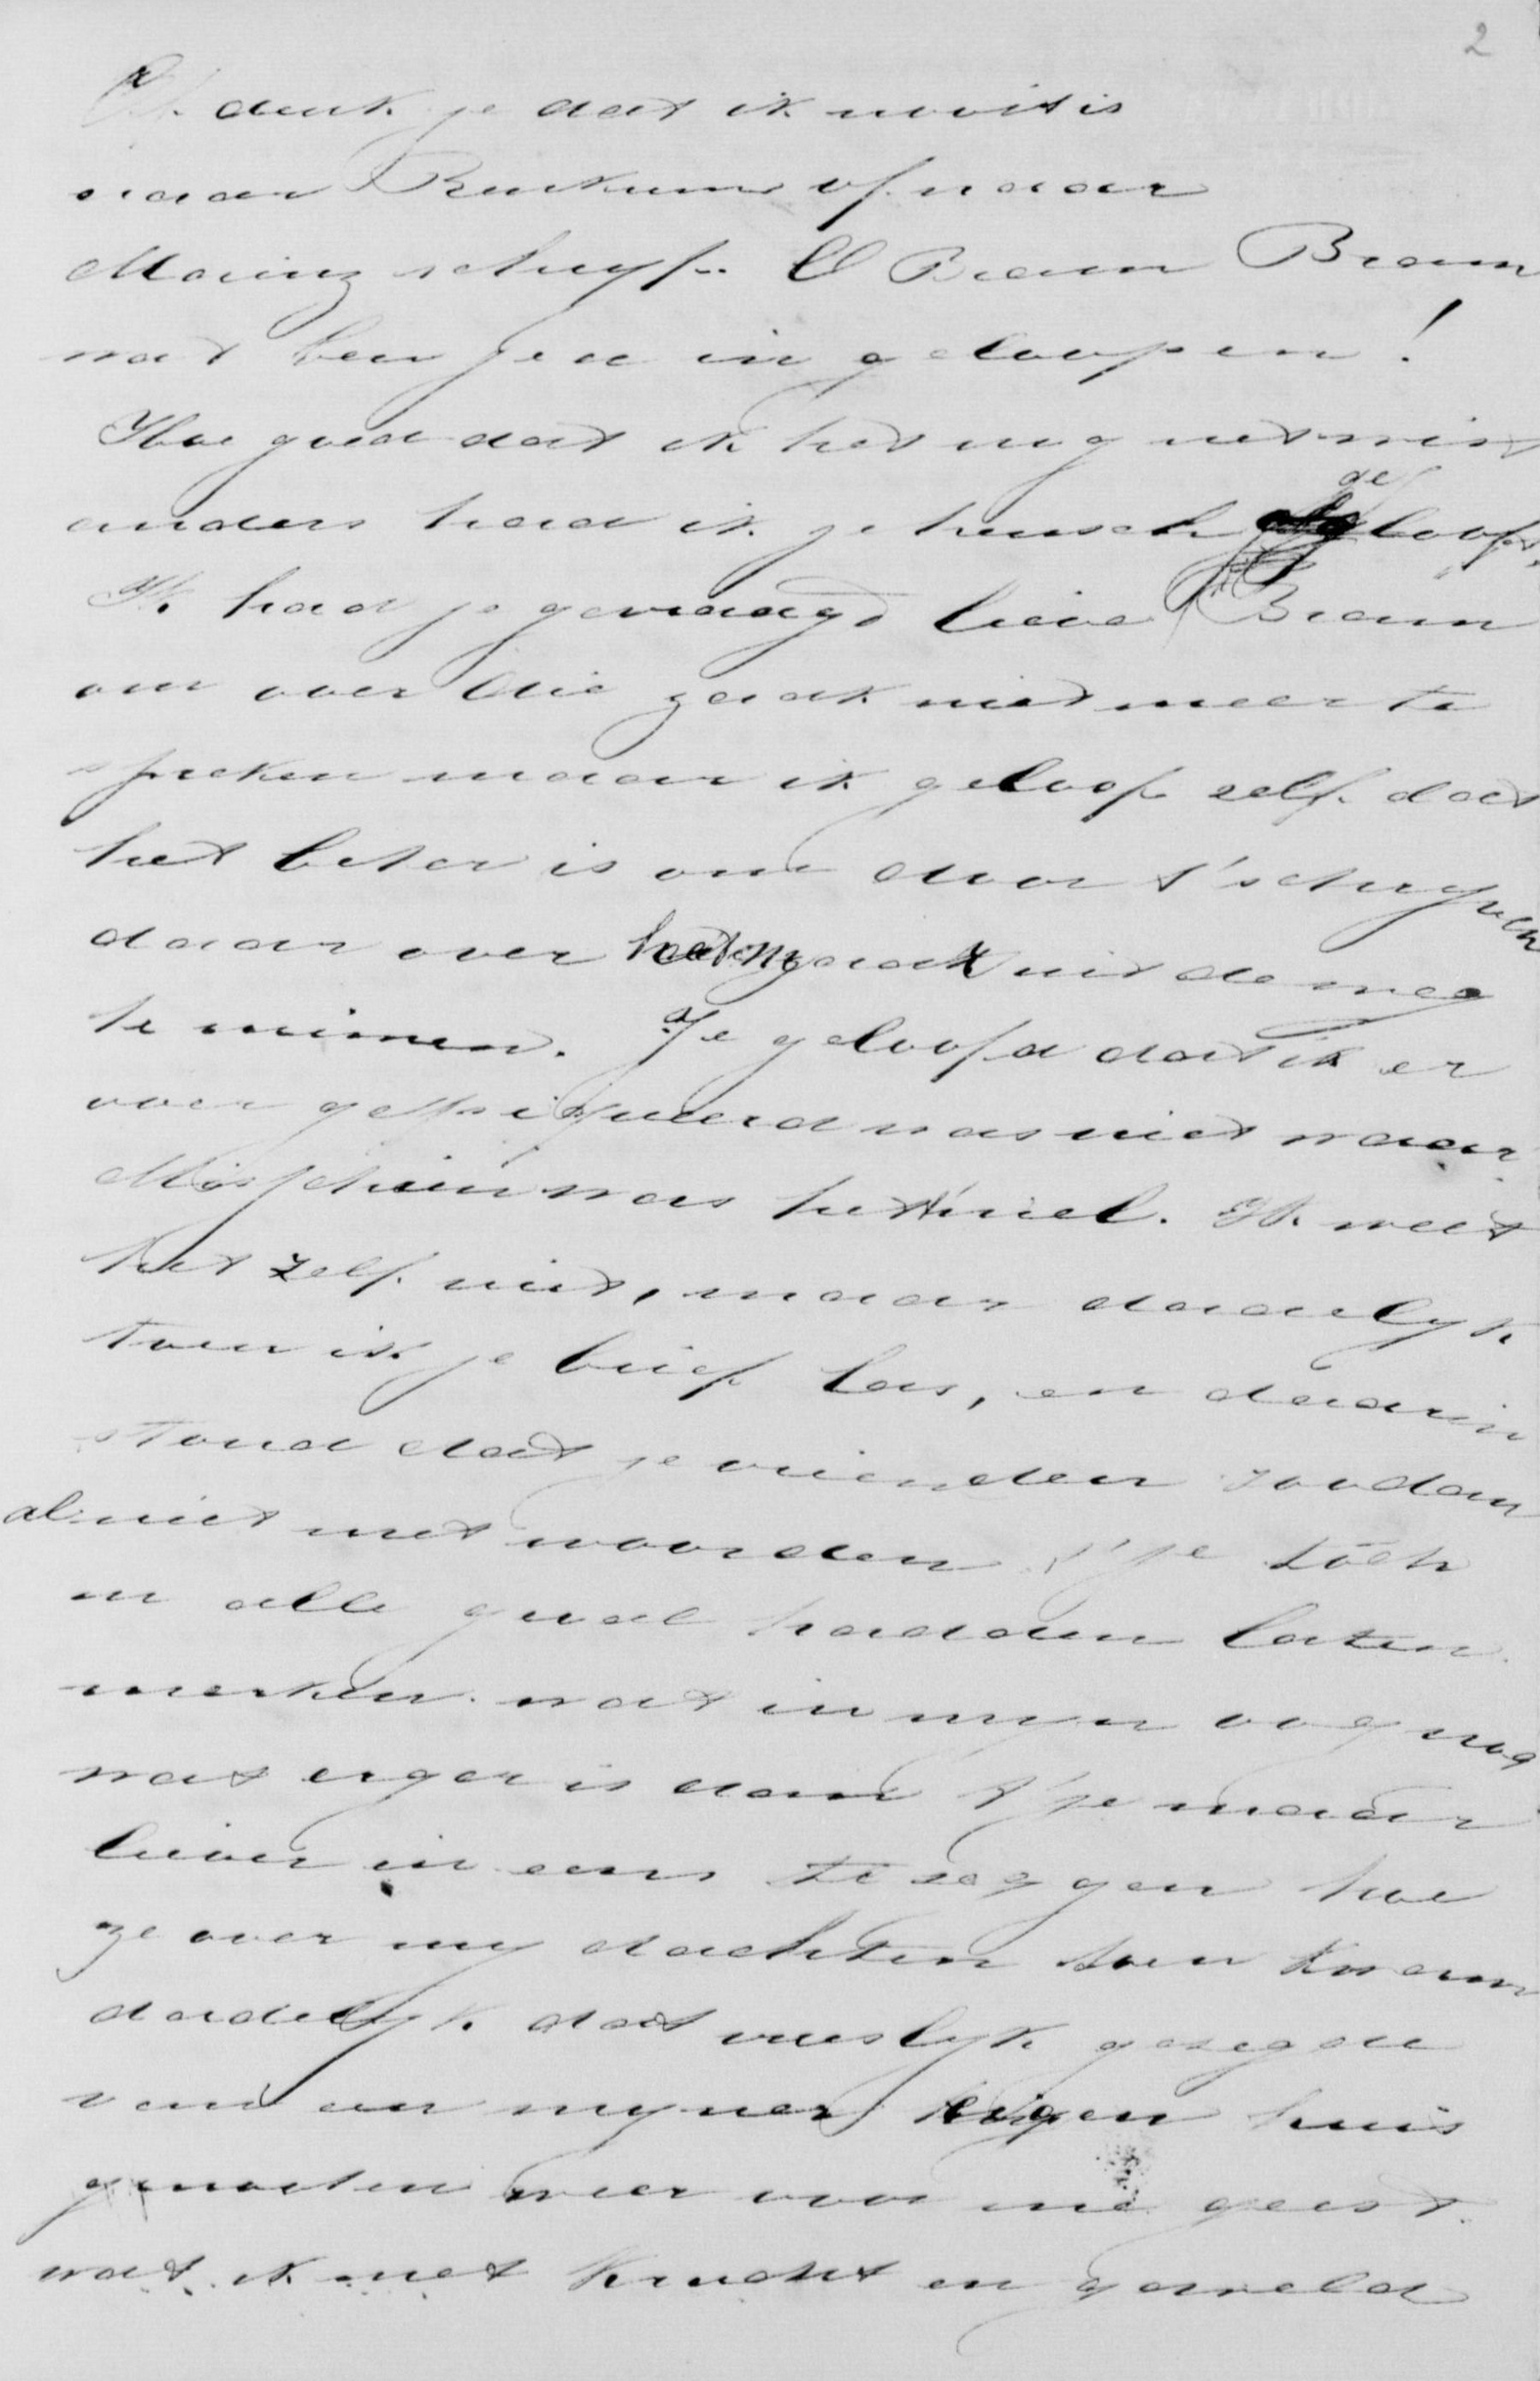 2
Ik denk je dat ik nooit is
naar Renkum of naar
Marinz schrijf. O Bram Bram
wat ben je er in geloopen!
Hoe goed dat ik het nog net wist
anders had ik je heusch geloofd.
Ik had je gevraagd lieve Bram
om over die zaak niet meer te
spreken maar ik geloof zelf dat
het beter is om door t'schryven
daar over uit de weg
te ruimen. Je geloofd dat ik er
over gepiqueerd was niet waar.
Misschien was het wel. Ik weet
het zelf niet, maar dadelyk
toen ik je brief las, en daarin
stond dat je vrienden zoo dan
al niet met woorden t'je toch
in alle geval hadden laten
merken. wat in myn oog nog
wat erger is dan t'je maar
liever in eens te zeggen hoe
ze over my dachten toen kwam
dadelyk dat vreeslyk gezegde
van een myner eigen huis
genooten weer voor me geest.
wat ik met kracht en geweld